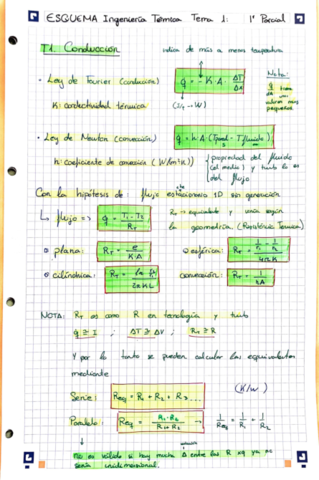 ESQUEMA Ingeniería Térmica Tema 1: 1º Parcial
T1. Conducción
indica de más a menos temperatura
• Ley de Fourier (conducción)
q = -K·A·ΔT/Δx
Nota:
K: conductividad térmica
(J/s → W)
• Ley de Newton (convección)
q = h·A·(Tpared - Tfluido)
h: coeficiente de convección (W/m²K)
propiedad del fluido
(el medio) y
del flujo
Con la hipótesis de: flujo estacionario 1D sin generación
↳ flujo =>
q = T₁ - T₂ / R_T
R_T = equivalente y varía según
la geometría. (Resistencia Térmica)
• plana: R_T = e / K·A
• esférica: R_T = 1/r₁ - 1/r₂ / 4πK
• cilíndrica: R_T = ln r₂/r₁ / 2πKL
convección: R_T = 1 / hA
NOTA: R_T es como R en tecnología y tanto
q ≅ I ; ΔT ≅ ΔV ; R_T ≅ R
Y por lo tanto se pueden calcular las equivalentes
mediante
(K/W)
Serie: Req = R₁ + R₂ + R₃ ...
Paralelo: Req = R₁·R₂ / R₁+R₂ → 1/Req = 1/R₁ + 1/R₂
no es válido si hay mucha Δ entre las R xq ya no
sería unidimensional.